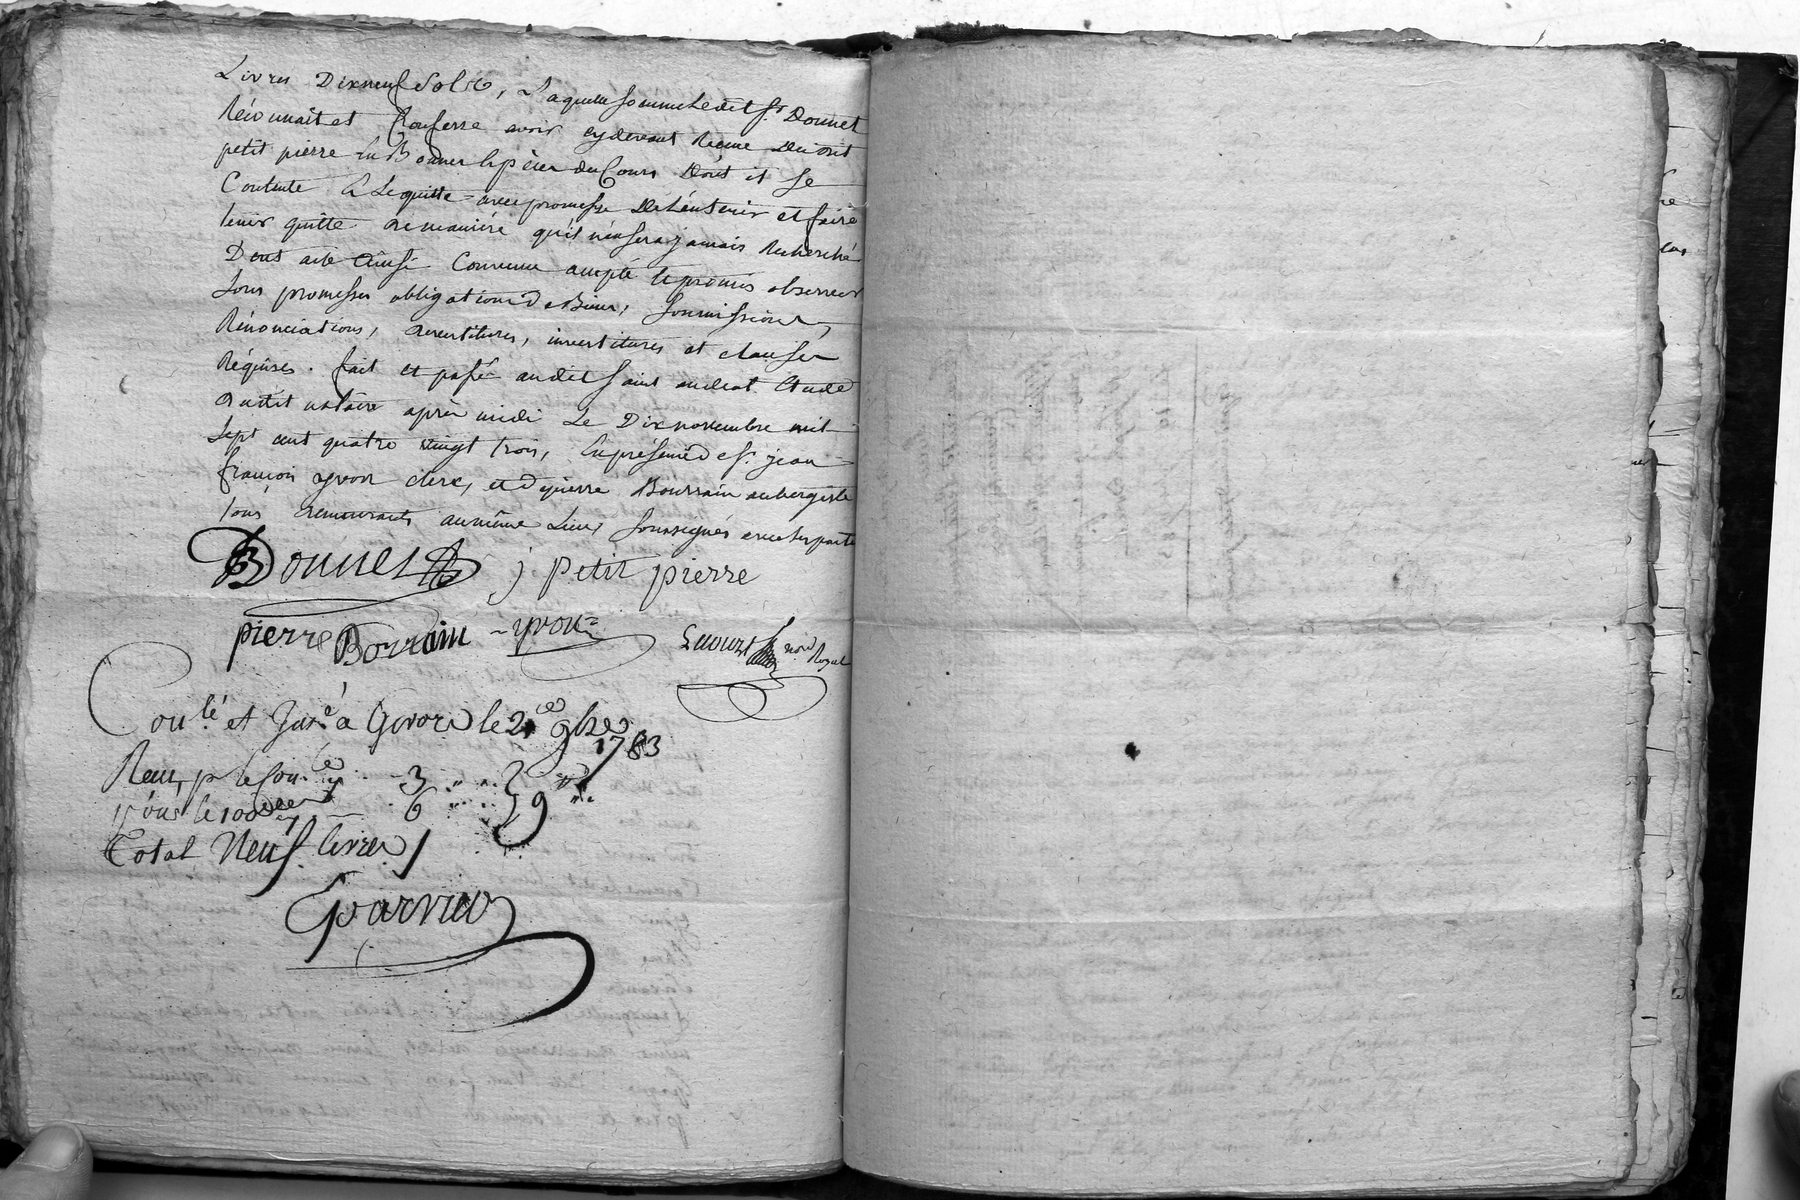 Livres Dixneuf Sols, Laquelle somme ledit Sr. Donnet
Réconnaît et Confesse avoir cydevant Reçue dudit
petit pierre En Bonnes Espèces du Cours Dont il se
Contente & Le quitte avec promesse de L'entenir et faire
tenir quitte de maniére qu'il n'en sera jamais Recherché
Dont acte Ainsi Convenu accepté et promis observer
Sous promesses obligations de Biens, soumissions,
Rénonciations, devestitures, investitures et clauses
Réquises. fait et passé audit Saint andeol Etude
dudit notaire après midi Le Dix novembre mil
Sept cent quatre vingt trois, En présence de Sr. jean
françois yvon clerc, et de pierre Bourrain aubergiste
tous demeurants au même Lieu, soussignés avec les parties
Donnet j petit pierre
pierre Bourrain yvon
nore Royal
Coulé. et Juré à Givors le 21e 9bre
1783
Reçu pr le Con.le 3
pour le 100e den 6 9
Total Neuf livres